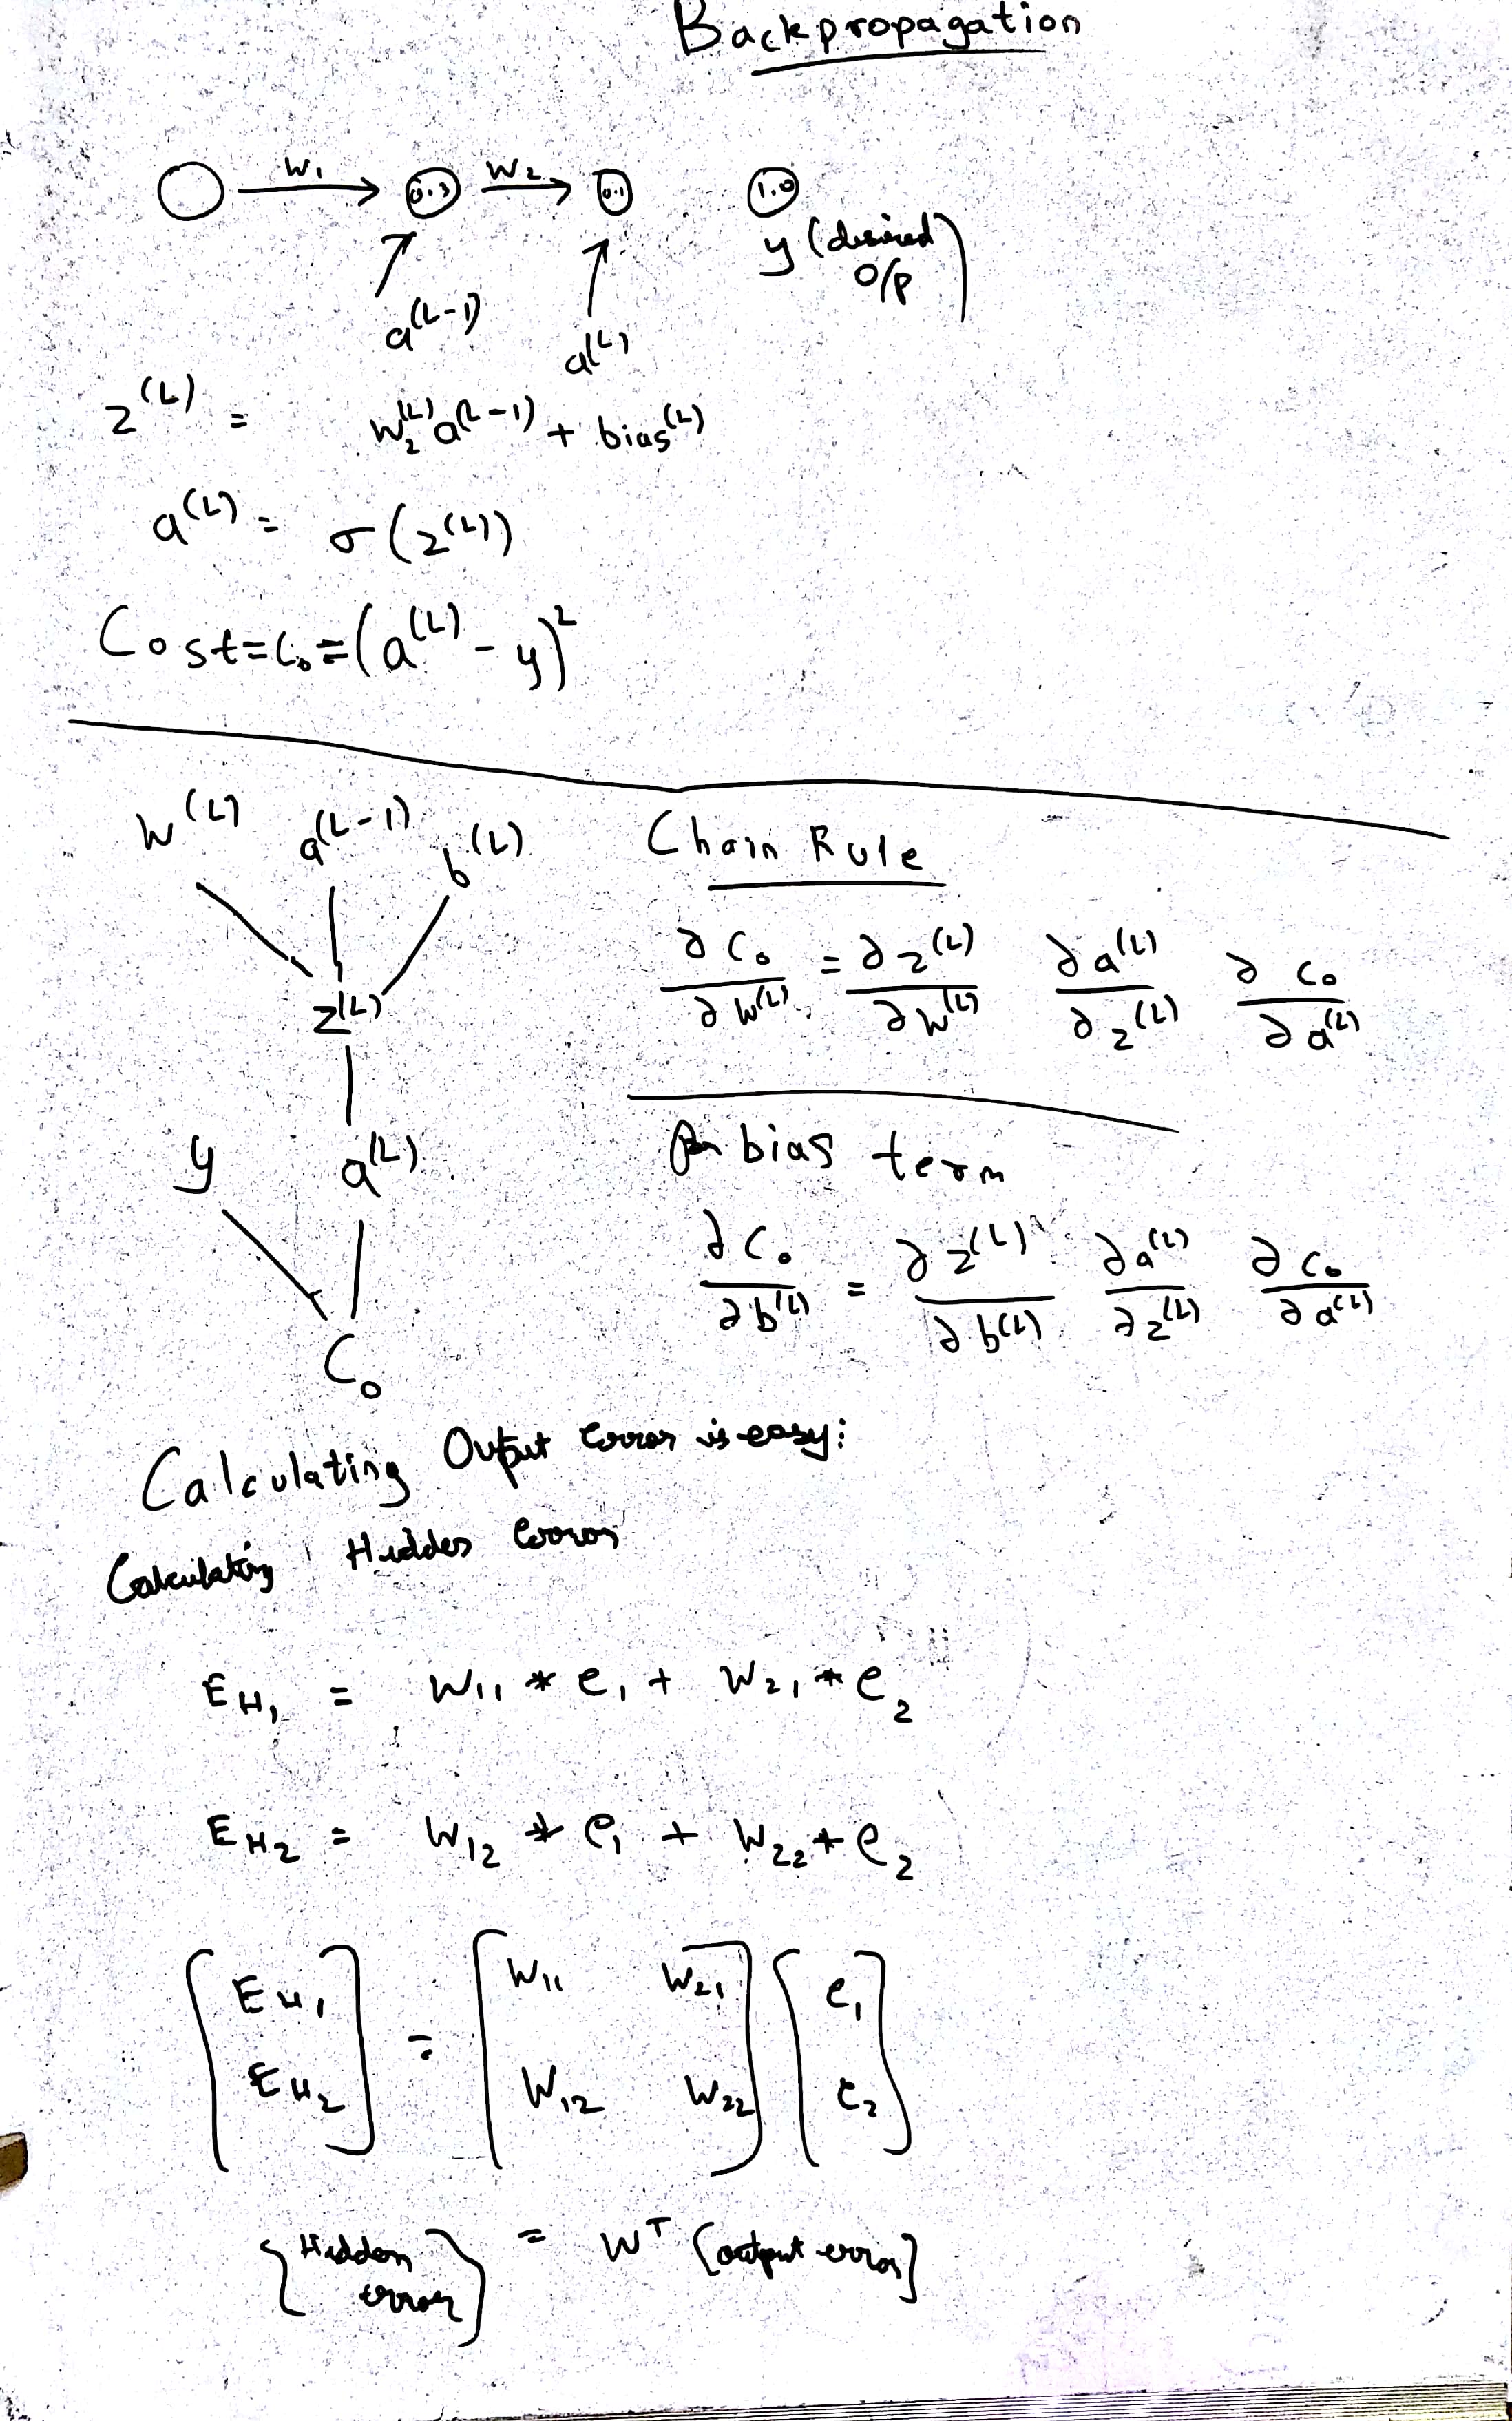 Backpropagation
W₁ 0.3 W₂ 0.1 1.0
y (desired o/p)
a^(L-1)
a^(L)
z^(L) = W₂^(L) a^(L-1) + bias^(L)
a^(L) = σ(z^(L))
Cost = C₀ = (a^(L) - y)²
W^(L) a^(L-1) b^(L)
z^(L)
y a^(L)
C₀
Chain Rule
∂C₀/∂W^(L) = ∂z^(L)/∂W^(L) ∂a^(L)/∂z^(L) ∂C₀/∂a^(L)
For bias term
∂C₀/∂b^(L) = ∂z^(L)/∂b^(L) ∂a^(L)/∂z^(L) ∂C₀/∂a^(L)
Calculating Output error is easy:
Calculating Hidden error
E_H₁ = W₁₁ * e₁ + W₂₁ * e₂
E_H₂ = W₁₂ * e₁ + W₂₂ * e₂
[E_H₁] = [W₁₁ W₂₁] [e₁]
[E_H₂] [W₁₂ W₂₂] [e₂]
{Hidden error} = W^T [output error]